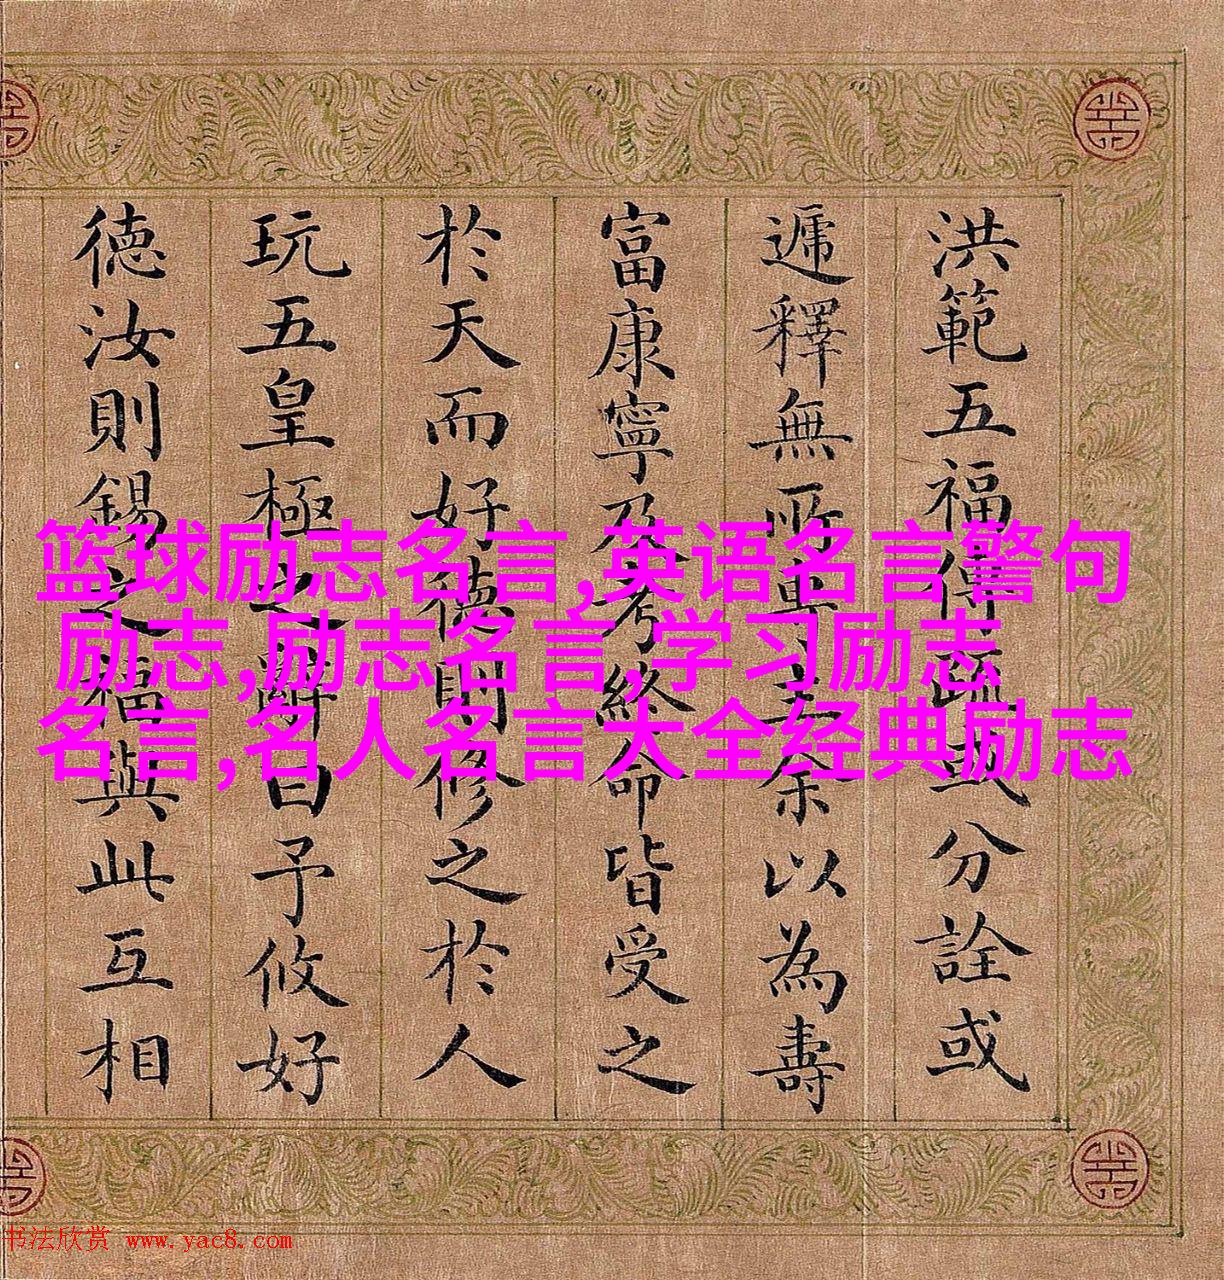 洪範五福傳疏或分詮或
遞釋無所專主余以為壽
富康寧及考終命皆受之
於天而好德則修之於人
玩五皇極之辭曰予攸好
德汝則錫之福與此互相
篮球励志名言,英语名言警句
励志,励志名言,学习励志
名言,名人名言大全经典励志
书法欣赏 www.yac8.com